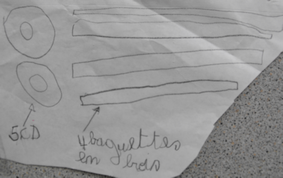 5CD
4 baguettes
en bois